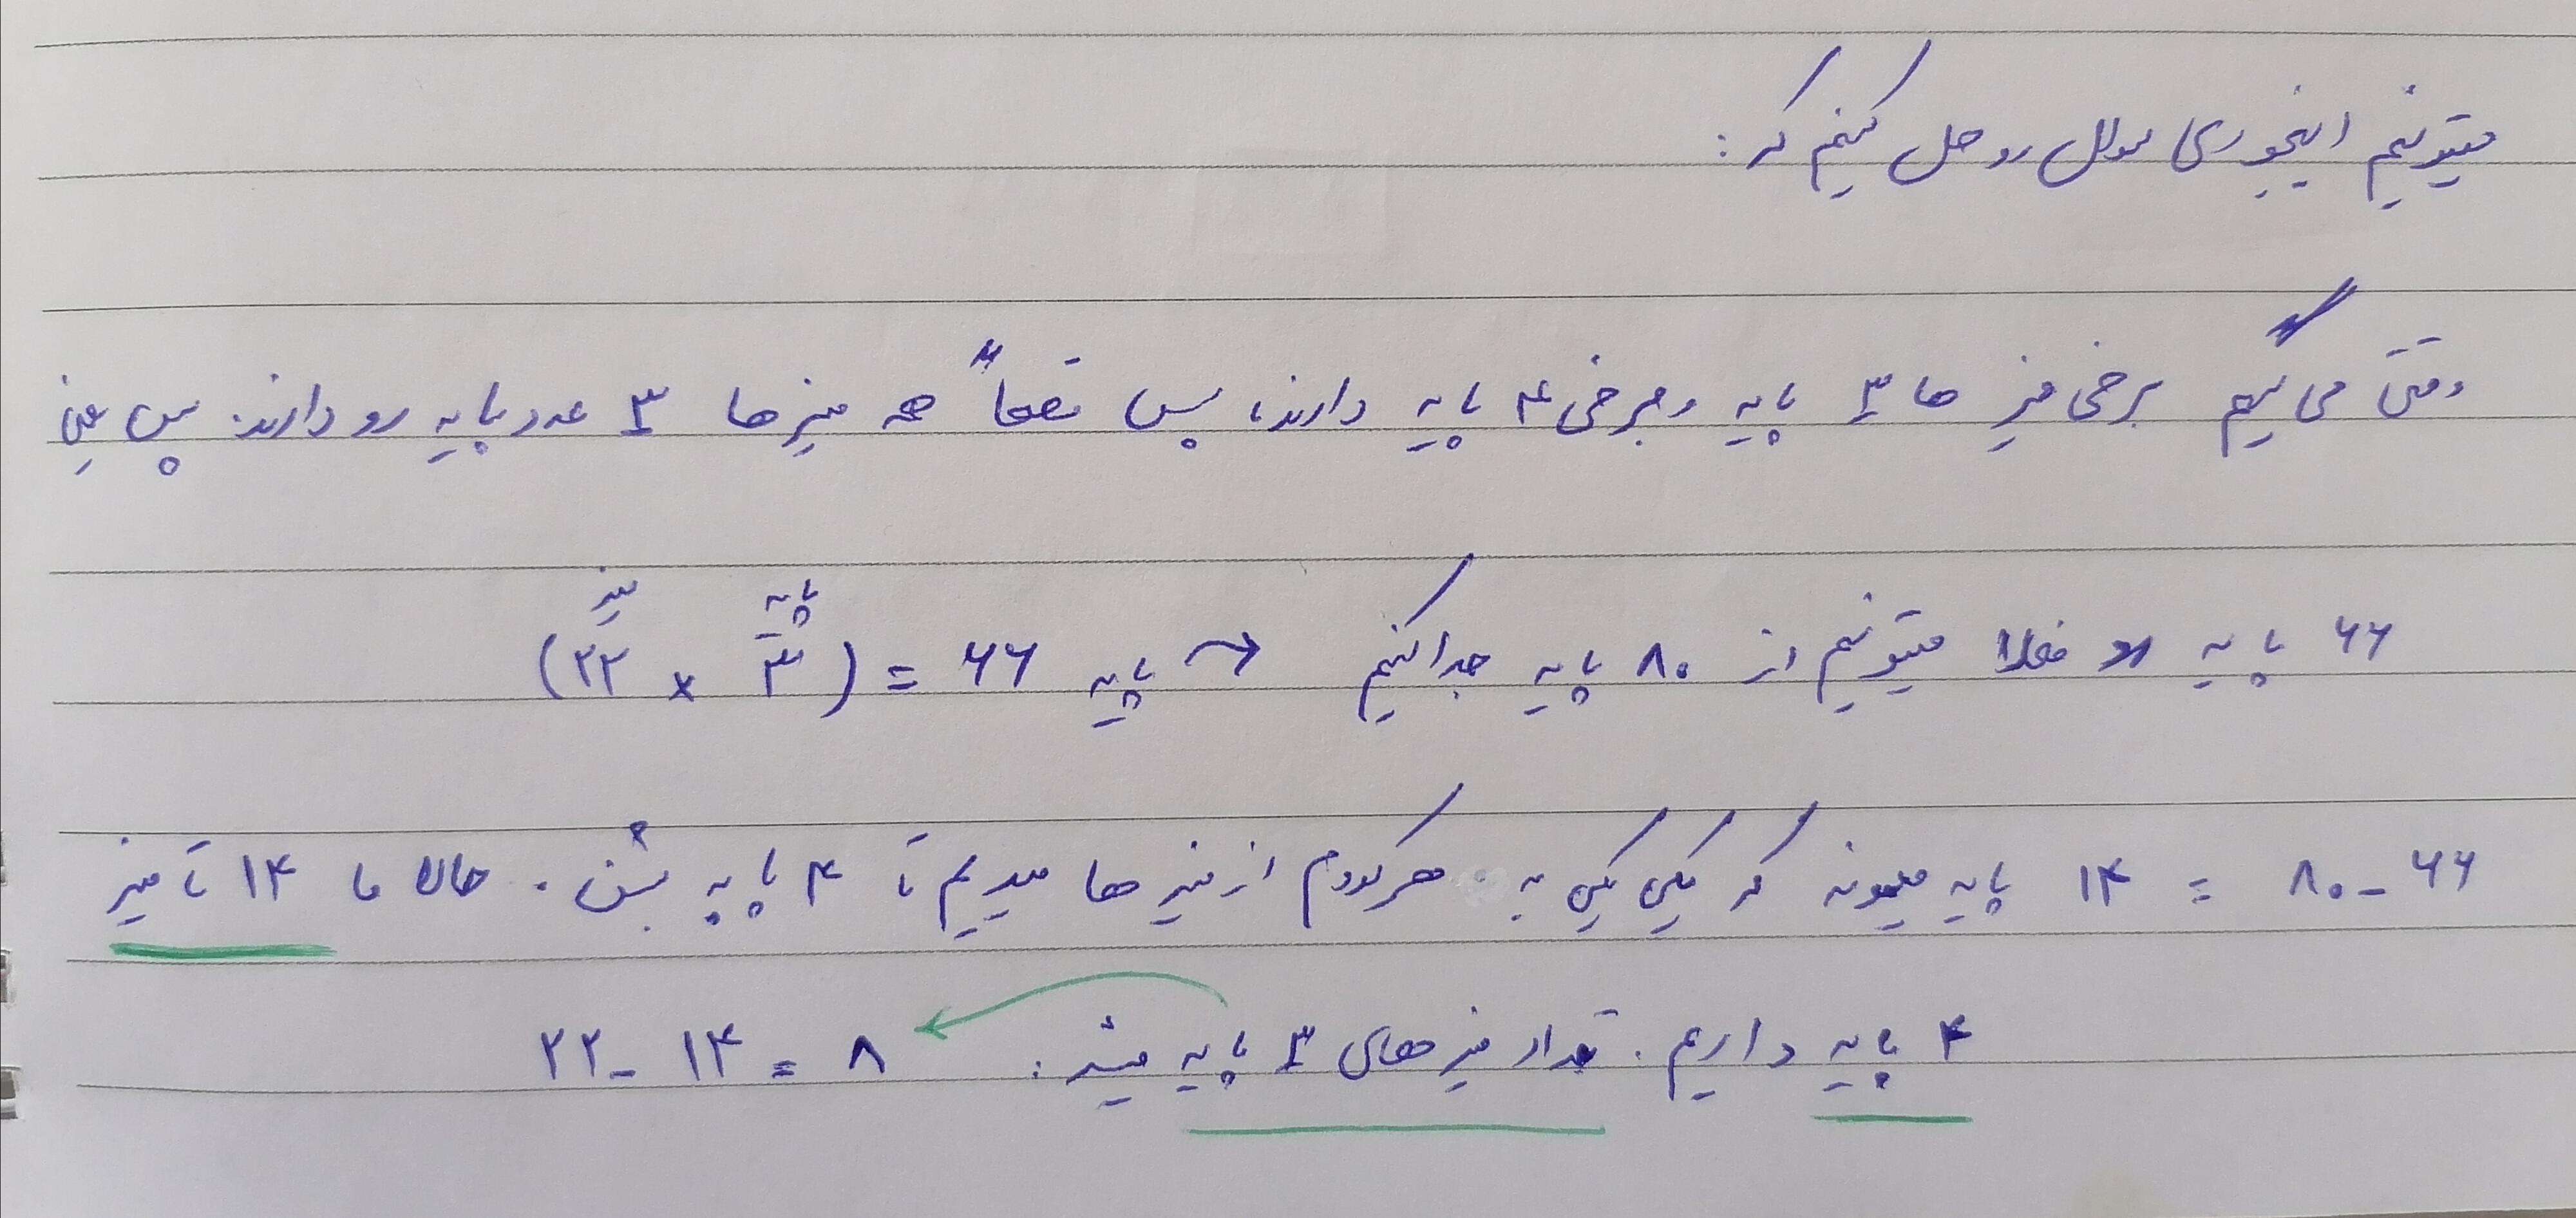 میتونیم اینجوری سوال رو حل کنیم که :
وقتی می گیم برخی میز ها ۳ پایه و برخی ۴ پایه دارند، پس قطعاً همه میزها ۳ عدد پایه رو دارند. پس یعنی
میز پایه
۶۶ پایه فعلا میتونیم از ۸۰ پایه جدا کنیم → پایه ۶۶ = (۳ × ۲۲)
۸۰ - ۶۶ = ۱۴ پایه میمونه که یکی یکی به هرکدوم از میز ها میدیم تا ۴ پایه بشن . حالا ما ۱۴ تا میز
۴ پایه داریم . تعداد میز های ۳ پایه میشه : ۲۲ - ۱۴ = ۸